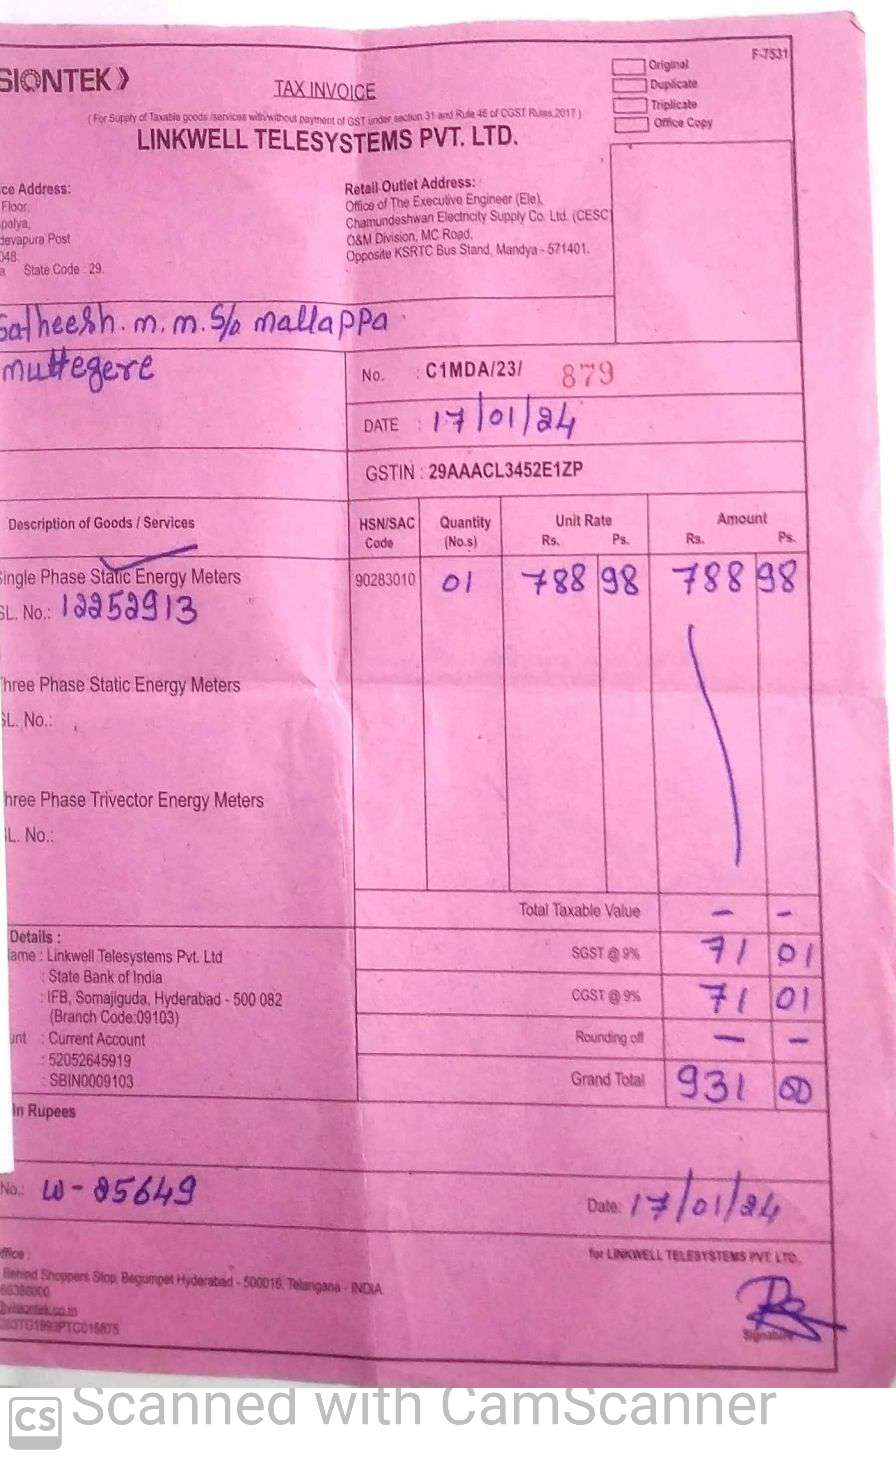 SIONTEK
TAX INVOICE
F-7531
Original
Duplicate
Triplicate
Office Copy
( For Supply of Taxable goods /services with/without payment of GST under section 31 and Rule 46 of CGST Rules,2017 )
LINKWELL TELESYSTEMS PVT. LTD.
ce Address:
Floor,
palya,
devapura Post
048.
a State Code : 29
Retail Outlet Address:
Office of The Executive Engineer (Ele),
Chamundeshwari Electricity Supply Co. Ltd. (CESC
O&M Division, MC Road,
Opposite KSRTC Bus Stand, Mandya - 571401.
Satheesh. m. m. S/o mallappa
muttegere
No. : C1MDA/23/ 879
DATE : 17/01/24
GSTIN : 29AAACL3452E1ZP
Description of Goods / Services HSN/SAC Code Quantity (No.s) Unit Rate Rs. Ps. Amount Rs. Ps.
Single Phase Static Energy Meters 90283010 01 788 98 788 98
SL. No.: 12252913
Three Phase Static Energy Meters
SL. No.:
hree Phase Trivector Energy Meters
L. No.:
Total Taxable Value - -
SGST @ 9% 71 01
CGST @ 9% 71 01
Rounding off - -
Grand Total 931 00
Details :
ame : Linkwell Telesystems Pvt. Ltd
: State Bank of India
: IFB, Somajiguda, Hyderabad - 500 082
(Branch Code:09103)
unt : Current Account
: 52052645919
: SBIN0009103
In Rupees
No.: W-25649
Date: 17/01/24
ffice :
Behind Shoppers Stop, Begumpet Hyderabad - 500016, Telangana - INDIA
66388000
for LINKWELL TELESYSTEMS PVT. LTD.
Signature
CS Scanned with CamScanner